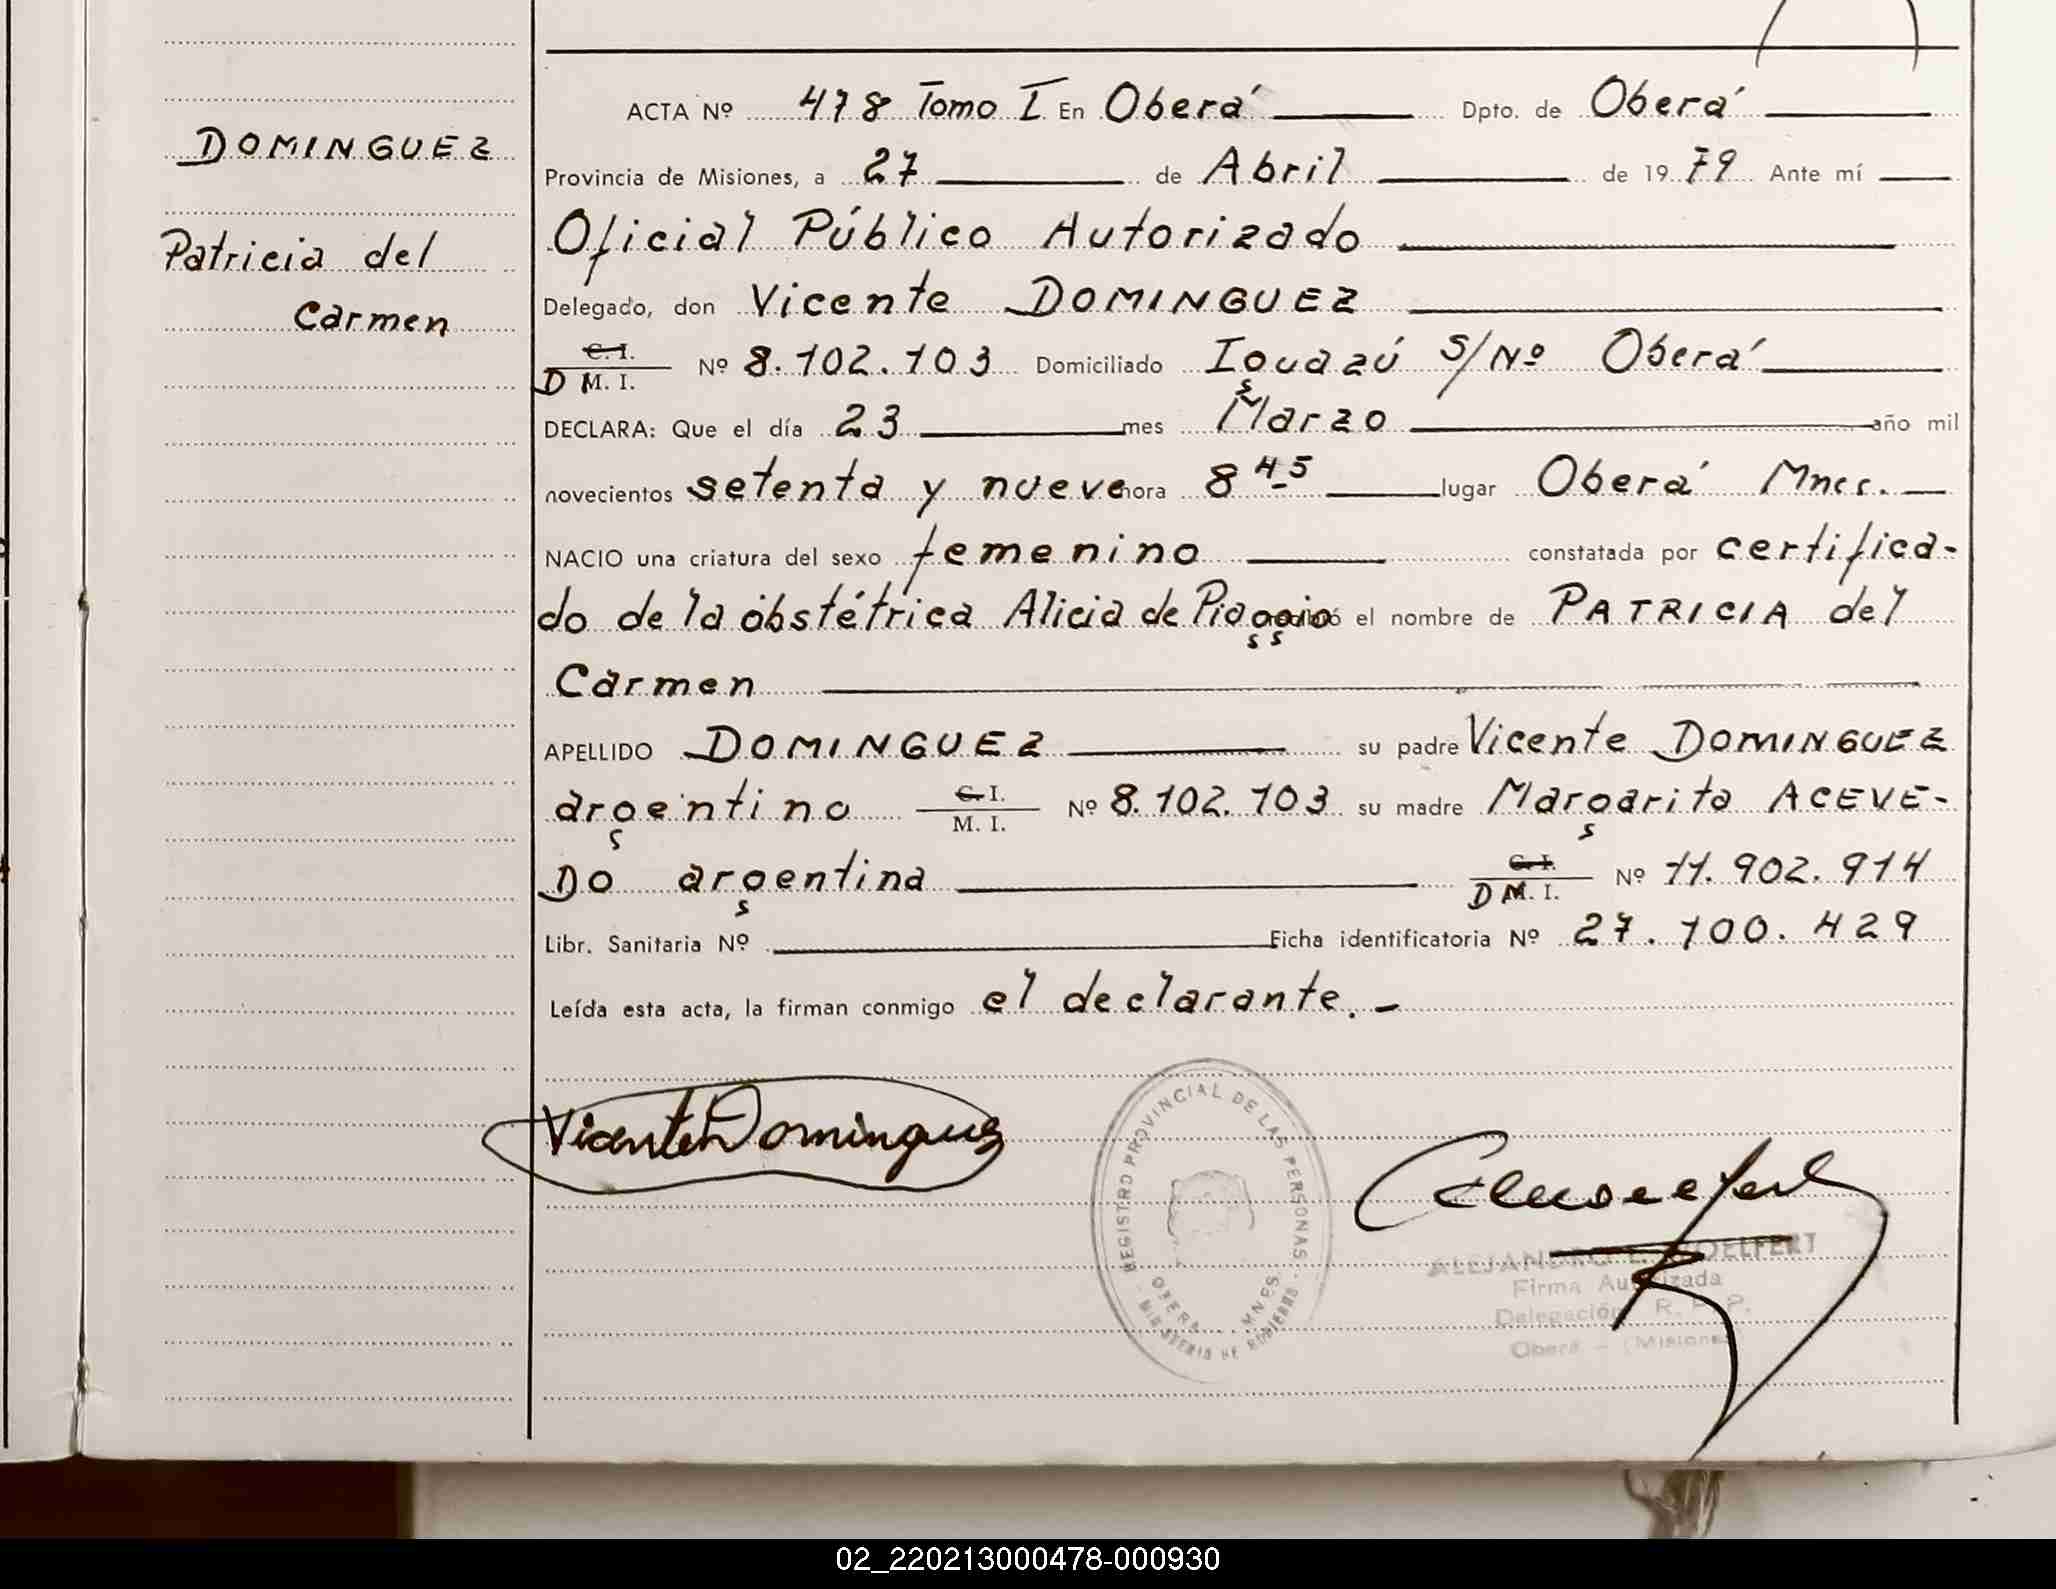 DOMINGUEZ
Patricia del
Carmen
ACTA Nº 478 Tomo I En Oberá Dpto. de Oberá
Provincia de Misiones, a 27 de Abril de 1979 Ante mí
Oficial Público Autorizado
Delegado, don Vicente DOMINGUEZ
C. I.
D M. I. Nº 8.102.103 Domiciliado Iguazú S/Nº Oberá
DECLARA: Que el día 23 mes Marzo año mil
novecientos setenta y nueve hora 8 45 lugar Oberá Mnes.
NACIO una criatura del sexo femenino constatada por certifica-
do de la obstétrica Alicia de Piaggio recibió el nombre de PATRICIA del
Carmen
APELLIDO DOMINGUEZ su padre Vicente DOMINGUEZ
argentino C. I. M. I. Nº 8.102.103 su madre Margarita ACEVE-
DO argentina C. I. D M. I. Nº 11.902.914
Libr. Sanitaria Nº Ficha identificatoria Nº 27.100.429
Leída esta acta, la firman conmigo el declarante. -
Vicente Dominguez
REGISTRO PROVINCIAL DE LAS PERSONAS
OBERA MNES
MINISTERIO DE GOBIERNO
ALEJANDRO WOELFERT
Firma Autorizada
Delegación R. P. P.
Oberá - (Misiones)
02_220213000478-000930